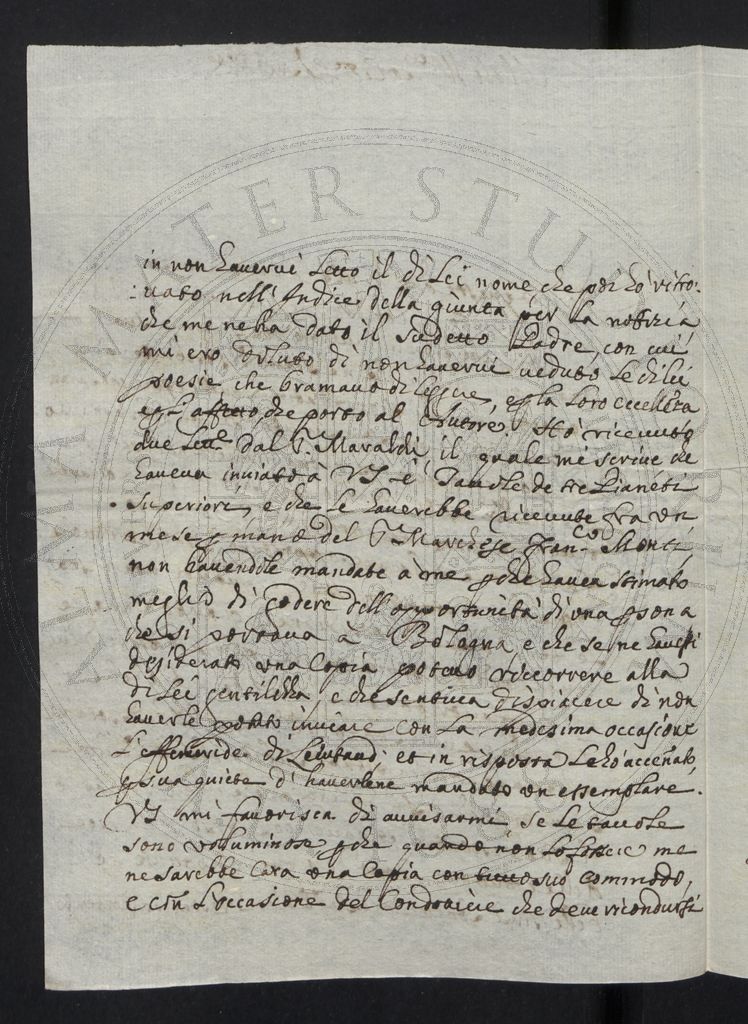 in non havervi letto il di lei nome che poi hò ritro:
:vato nell'Indice della giunta per la notizia
che me ne ha dato il sudetto Padre, con cui
mi ero doluto di non havervi veduto le di lei
poesie che bramavo di leggere, e p la loro eccellẽza
e p l'affetto, che porto al Autore. Hò ricevuto
due lett.e dal S.r Maraldi, il quale mi scrive che
haveva inviato à VS le Tavole de tre Pianeti
superiori, e che le haverebbe ricevute fra un
mese p mano del S.r Marchese Fran.co Monti,
non havendole mandate à me p che havea stimato
meglio di godere dell'opportunità di una psona
che si portava à Bologna, e che se ne havessi
desiderato una Copia potevo riccorrere alla
di Lei gentilezza, e che sentiva dispiacere di non
haverle potuto inviare con la medesima occasione
l'effemeride di et in risposta le hò accẽnato
p sua quiete d'haverlene mandato un essemplare.
VS mi favorisca di avvisarmi se le tavole
sono voluminose, p che quando non lo fossero me
ne sarebbe cara una Copia con suo commodo,
e con l'occasione del che deve ricondursi